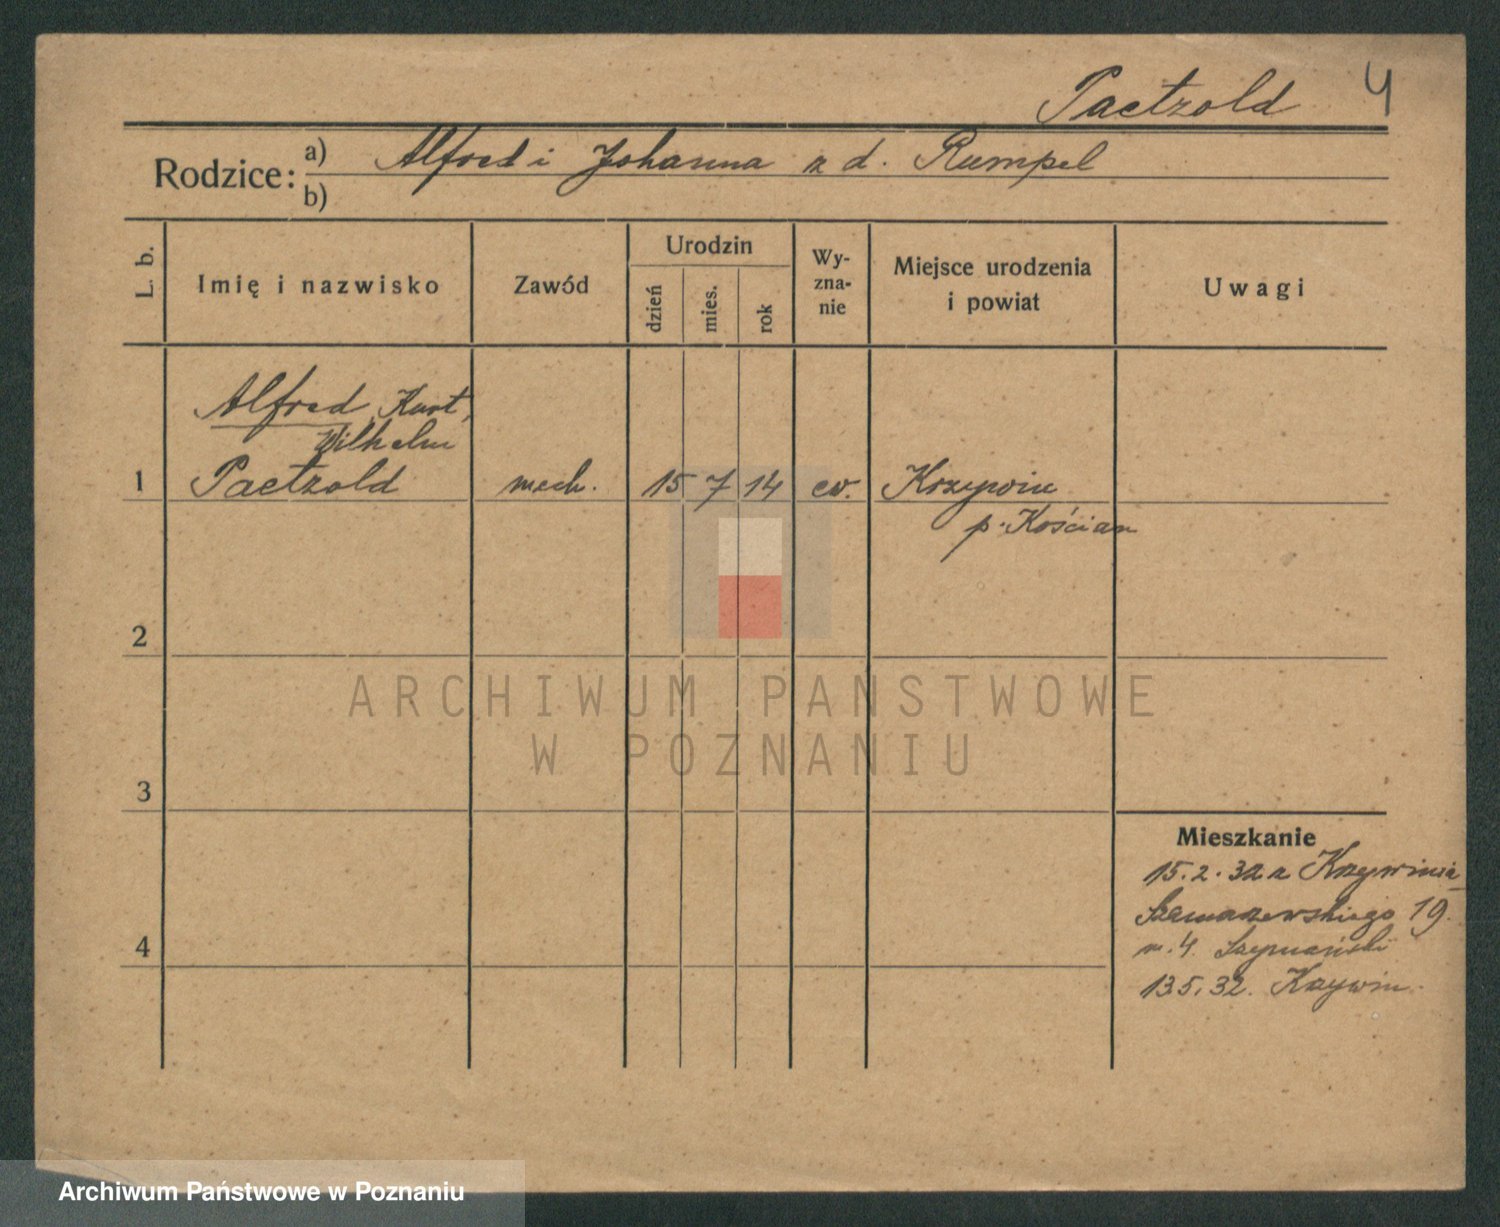 Paetzold 4
Rodzice: a) Alfred i Johanna z d. Rumpel
b)
L. b.
Imię i nazwisko
Zawód
Urodzin
dzień
mies.
rok
Wy-
zna-
nie
Miejsce urodzenia
i powiat
Uwagi
Alfred, Kurt,
Wilhelm
1 Paetzold mech. 15 7 14 ew. Krzywiń
p. Kościan
2
3
4
Mieszkanie
15.2.32 z Krzywinia
Szamarzewskiego 19.
m. 4. Szymański
13.5.32. Krzywiń.
ARCHIWUM PAŃSTWOWE
W POZNANIU
Archiwum Państwowe w Poznaniu